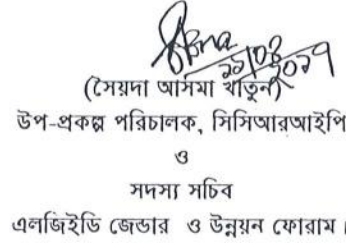 ২২/০৪/২০২৭
(সৈয়দা আসমা খাতুন)
উপ-প্রকল্প পরিচালক, সিসিআরআইপি
ও
সদস্য সচিব
এলজিইডি জেন্ডার ও উন্নয়ন ফোরাম।